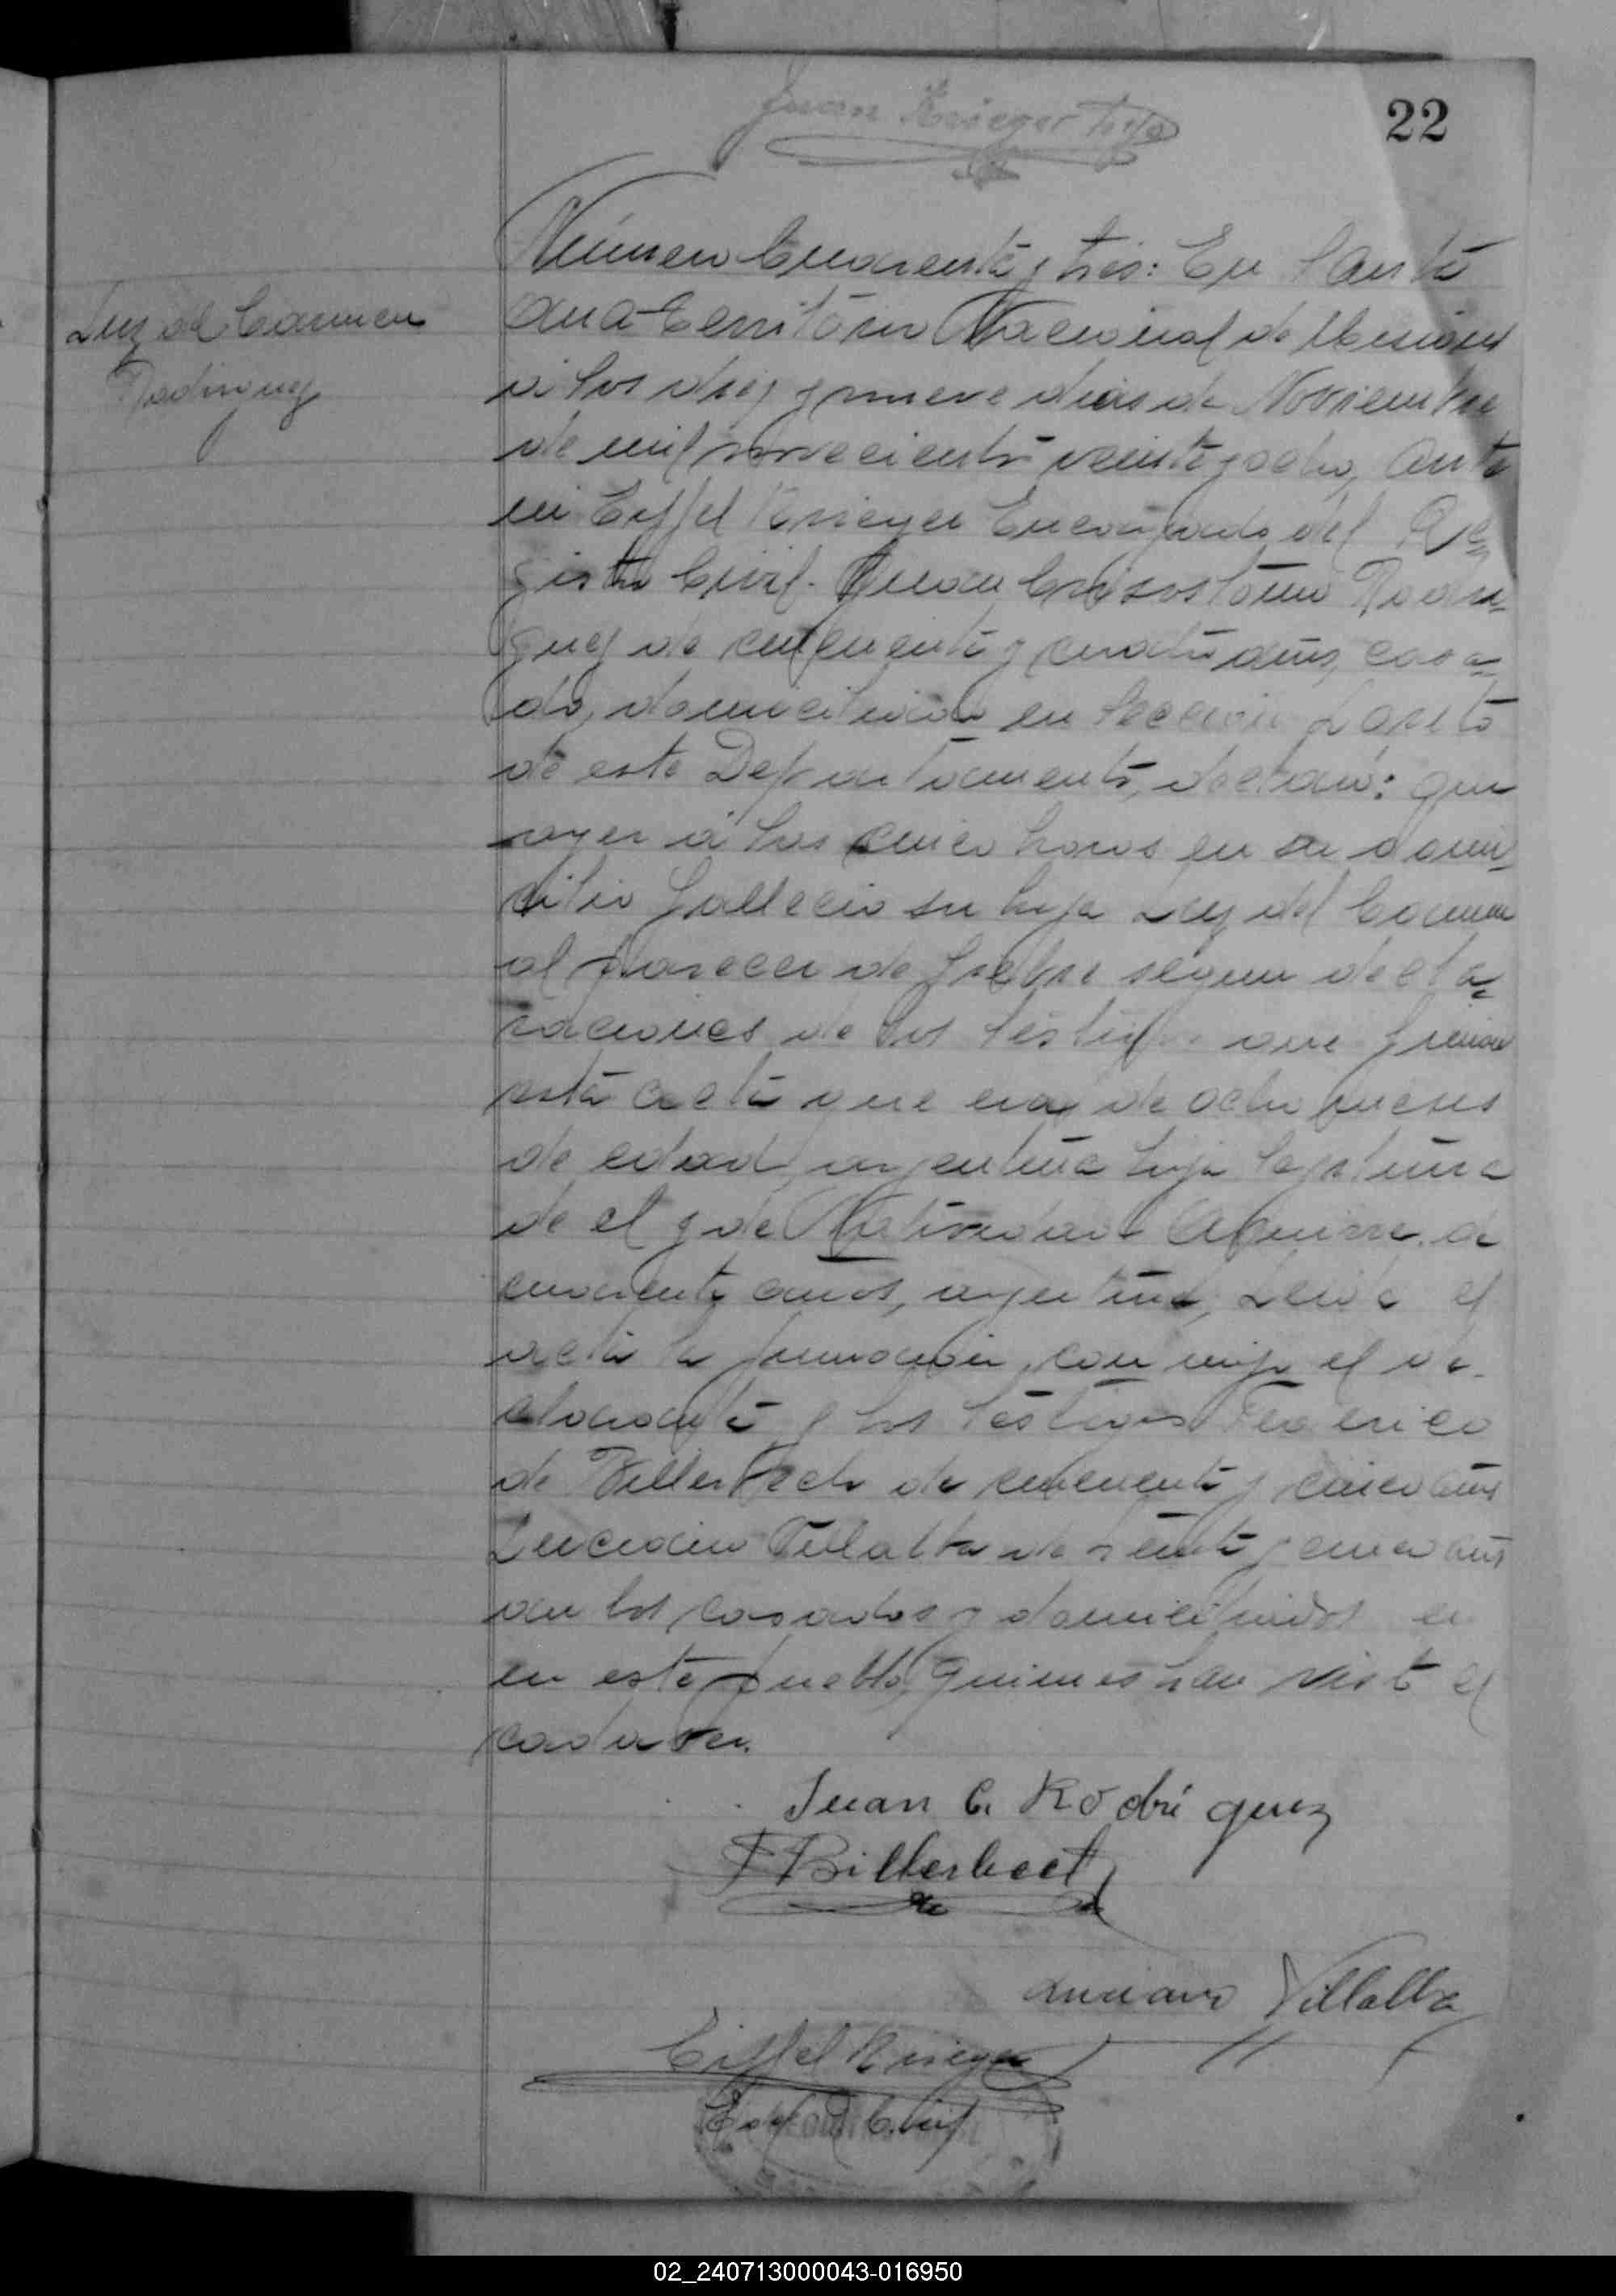 22
Juan Krieger hijo
Número Cuarenta y tres: En Santa
Ana Territorio Nacional de Misiones
Luz del Carmen
Rodriguez
a los diez y nueve dias de Noviembre
de mil novecientos veinte y ocho, Ante
mi Eiffel Krieger Encargado del Re=
gistro Civil. Juan Crisostomo Rodri=
guez de cincuenta y cuatro años, casa=
do, domiciliado en Seccion Loreto
de este Departamento, declaró: que
ayer á las cinco horas en su domi=
cilio fallecio su hija Luz del Carmen
al parecer de fiebre segun decla=
raciones de los testigos que firman
esta acta que era de ocho meses
de edad argentina hija legitima
de el y de Natividad Aguirre de
cuarenta años, argentina, Leida el
acta la firmaron conmigo el de-
clarante y los testigos Federico
de Billerbeck de cincuenta y cinco años
Luciano Villalba de treinta y cinco años
ambos casados y domiciliados en
en este pueblo, quienes han visto el
cadaver.
Juan C. Rodriguez
F Billerbeck
Luciano Villalba
Eiffel Krieger
02_240713000043-016950